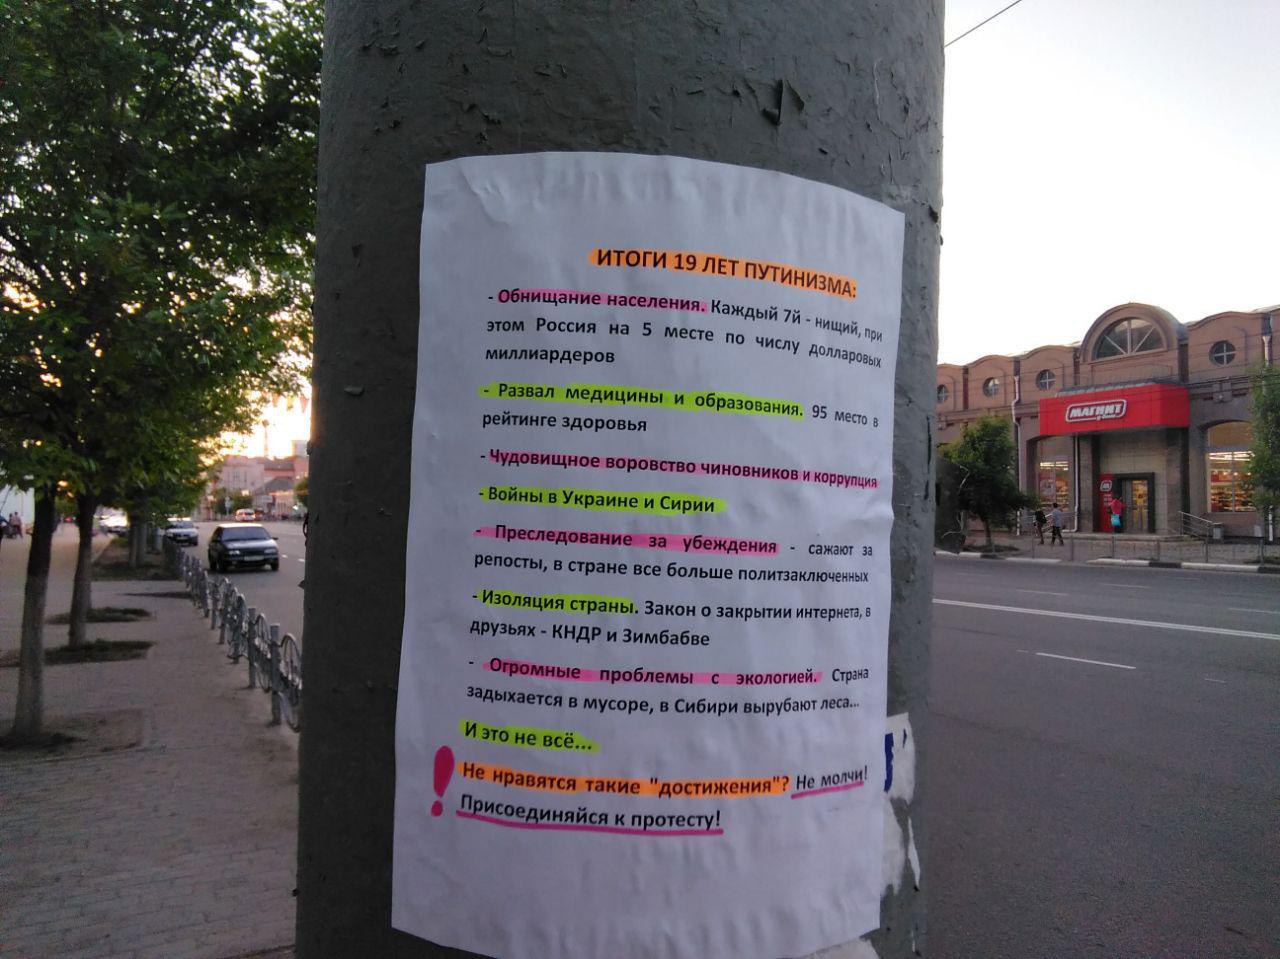 ИТОГИ 19 ЛЕТ ПУТИНИЗМА:
- Обнищание населения. Каждый 7й - нищий, при
этом Россия на 5 месте по числу долларовых
миллиардеров
- Развал медицины и образования. 95 место в
рейтинге здоровья
- Чудовищное воровство чиновников и коррупция
- Войны в Украине и Сирии
- Преследование за убеждения - сажают за
репосты, в стране все больше политзаключенных
- Изоляция страны. Закон о закрытии интернета, в
друзьях - КНДР и Зимбабве
- Огромные проблемы с экологией. Страна
задыхается в мусоре, в Сибири вырубают леса...
И это не всё...
Не нравятся такие "достижения"? Не молчи!
Присоединяйся к протесту!
МАГНИТ